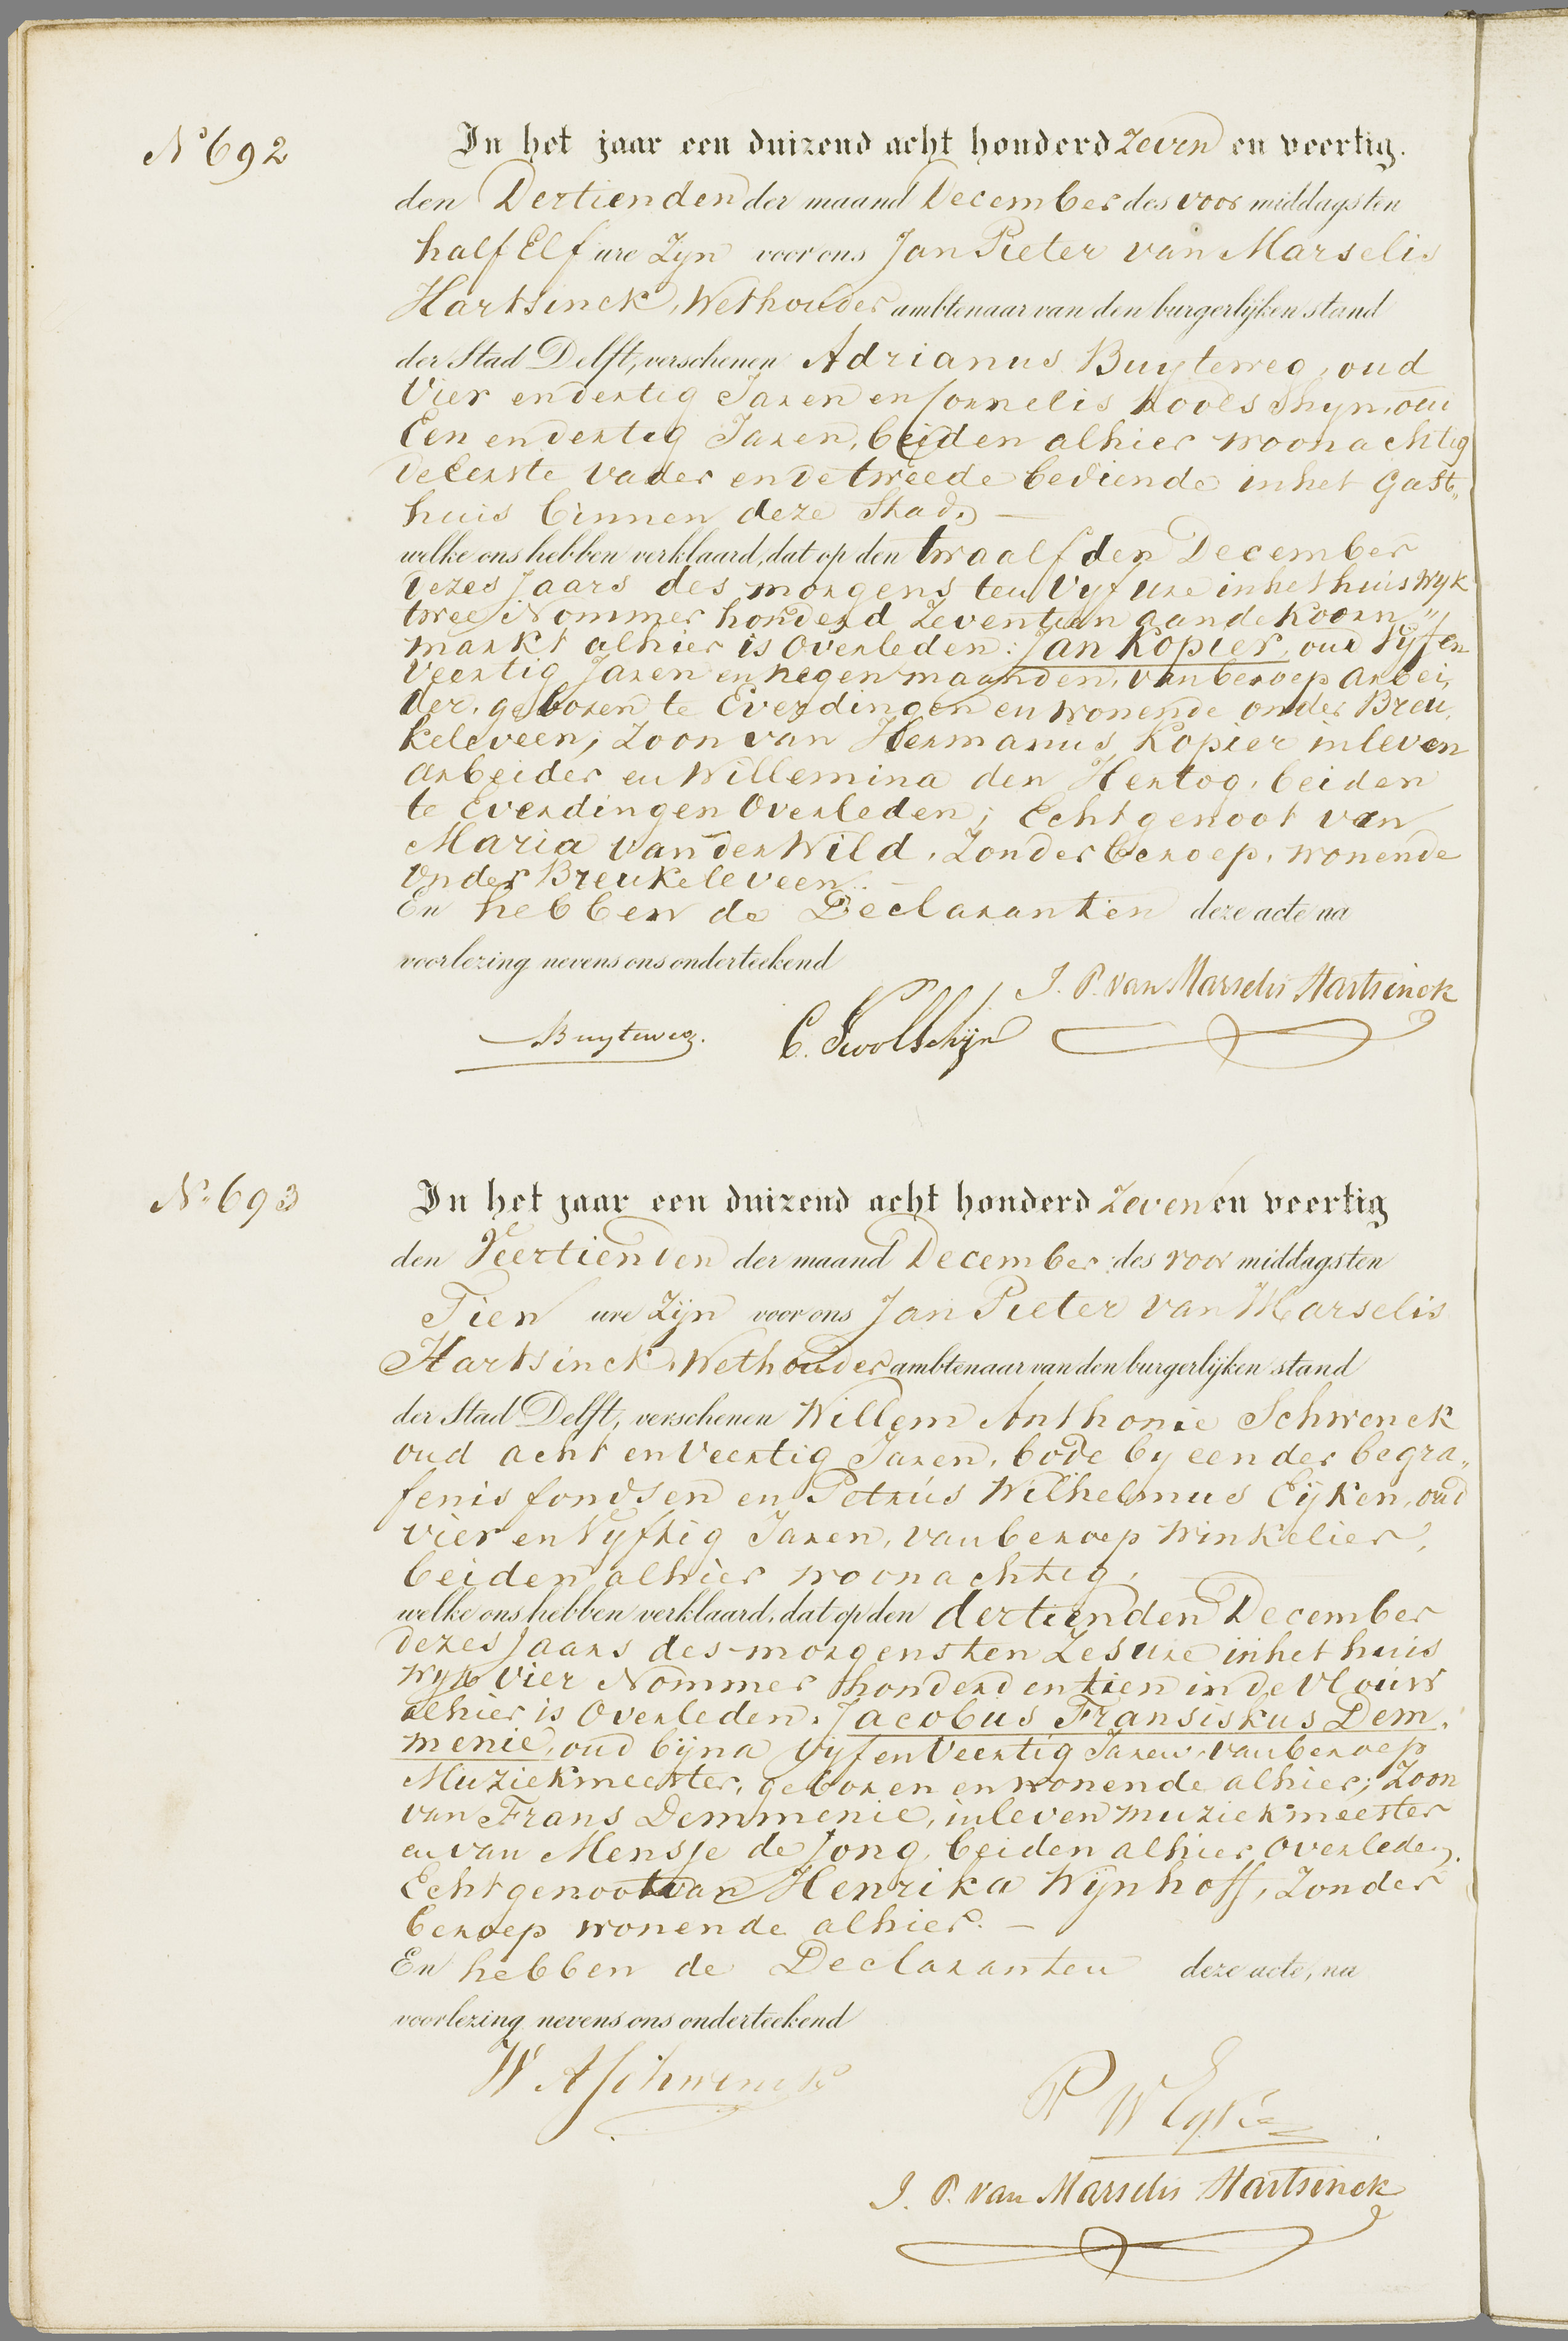 No 692
In het jaar een duizend acht honderd zeven en veertig.
den Dertienden der maand December des voor middags ten
half Elf ure Zyn voor ons Jan Pieter van Marselis
Hartsinck, Wethouder ambtenaar van den burgerlijken stand
der Stad Delft, verschenen Adrianus Buyteweg, oud
Vier en dertig Jaren en Cornelis
Een en dertig Jaren, beiden alhier woonachtig
de Eerste vader en de tweede bediende in het Gast„
huis binnen deze Stad, —
welke ons hebben verklaard, dat op den twaalfden December
dezes Jaars des morgens ten Vyf ure in het huis wyk
twee Nommer honderd Zeventien aan de Koorn„
markt alhier is Overleden: Jan Kopier, oud Vijf en
Veertig Jaren en negen maanden, van beroep arbei„
der, geboren te Everdingen en wonende onder Breu„
keleveen, Zoon van Hermanus Kopier in leven
arbeider en Willemina den Hertog, beiden
te Everdingen Overleden; Echtgenoot van
Maria van der Wild, Zonder beroep, wonende
Onder Breukeleveen. —
En hebben de Declaranten deze acte na
voorlezing nevens ons onderteekend
J. P. van Marselis Hartsinck
Buyteweg. C.
No 693
In het jaar een duizend acht honderd zeven en veertig
den Veertienden der maand December des voor middags ten
Tien ure Zijn voor ons Jan Pieter van Marselis
Hartsinck, Wethouder ambtenaar van den burgerlijken stand
der Stad Delft, verschenen Willem Anthonie Schwenck
oud acht en Veertig Jaren, bode by een der begra„
fenis fondsen en Petrús Wilhelmus Eijken, oud
vier en Vyftig Jaren, van beroep Winkelier,
beiden alhier woonachtig,
welke ons hebben verklaard, dat op den dertienden December
dezes Jaars des morgens ten Zes ure in het huis
wyk Vier Nommer honderd en tien in de Vlouw
alhier is Overleden, Jacobus Fransiskus Dem„
menie, oud bijna Vyf en Veertig Jaren van beroep
Muziekmeester, geboren en wonende alhier; Zoon
van Frans Demmenie, in leven muziekmeester
en van Mensje de Jong, beiden alhier Overleden.
Echtgenoot van Henrika Wijnhoff, Zonder
beroep wonende alhier. —
En hebben de Declaranten deze acte, na
voorlezing nevens ons onderteekend
W A Schwenck
P W Eyken
J. P. van Marselis Hartsinck